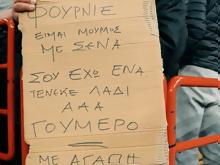 ΦΟΥΡΝΙΕ
ΕΙΜΑΙ ΜΟΥΜΟΣ
ΜΕ ΣΕΝΑ
ΣΟΥ ΕΧΩ ΕΝΑ
ΤΕΝΕΚΕ ΛΑΔΙ
ΑΑΑ
ΓΟΥΜΕΡΟ
ΜΕ ΑΓΑΠΗ